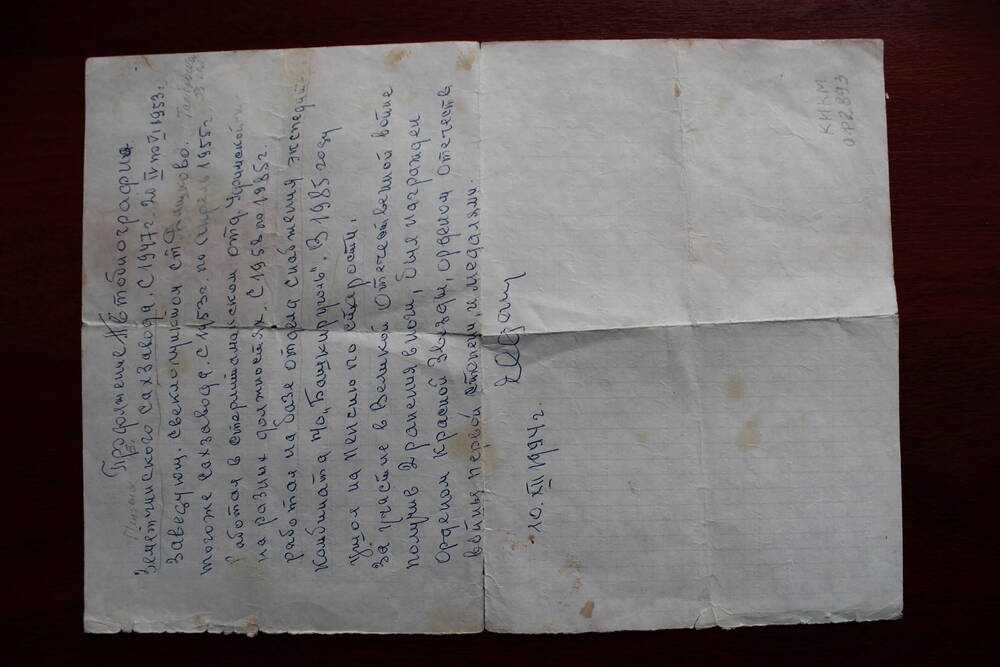 Продолжение Автобиографии
Земетчинского Сахзавода. С 1947г. 20 IV по VI 1953г.
Заведующ. свеклопунктом ст. Пашково.
тогоже сахзавода. С 1953г. по Апрель 1955г
Работал в стерлитамакском отд. Уфимской
на разных должностях. С 1958 по 1985г.
работал на базе отдела снабжения экспедит
Комбината п/о „Башкируголь". В 1985 году
ушол на пенсию по старости.
За участие в Великой Отечественной войне
получив 2 ранения в ноги, был награжден
Орденом Красной Звезды, орденом отечеств
войны первой степени, и медалями.
10. XII 1994г.
ККМ
ОФ2893